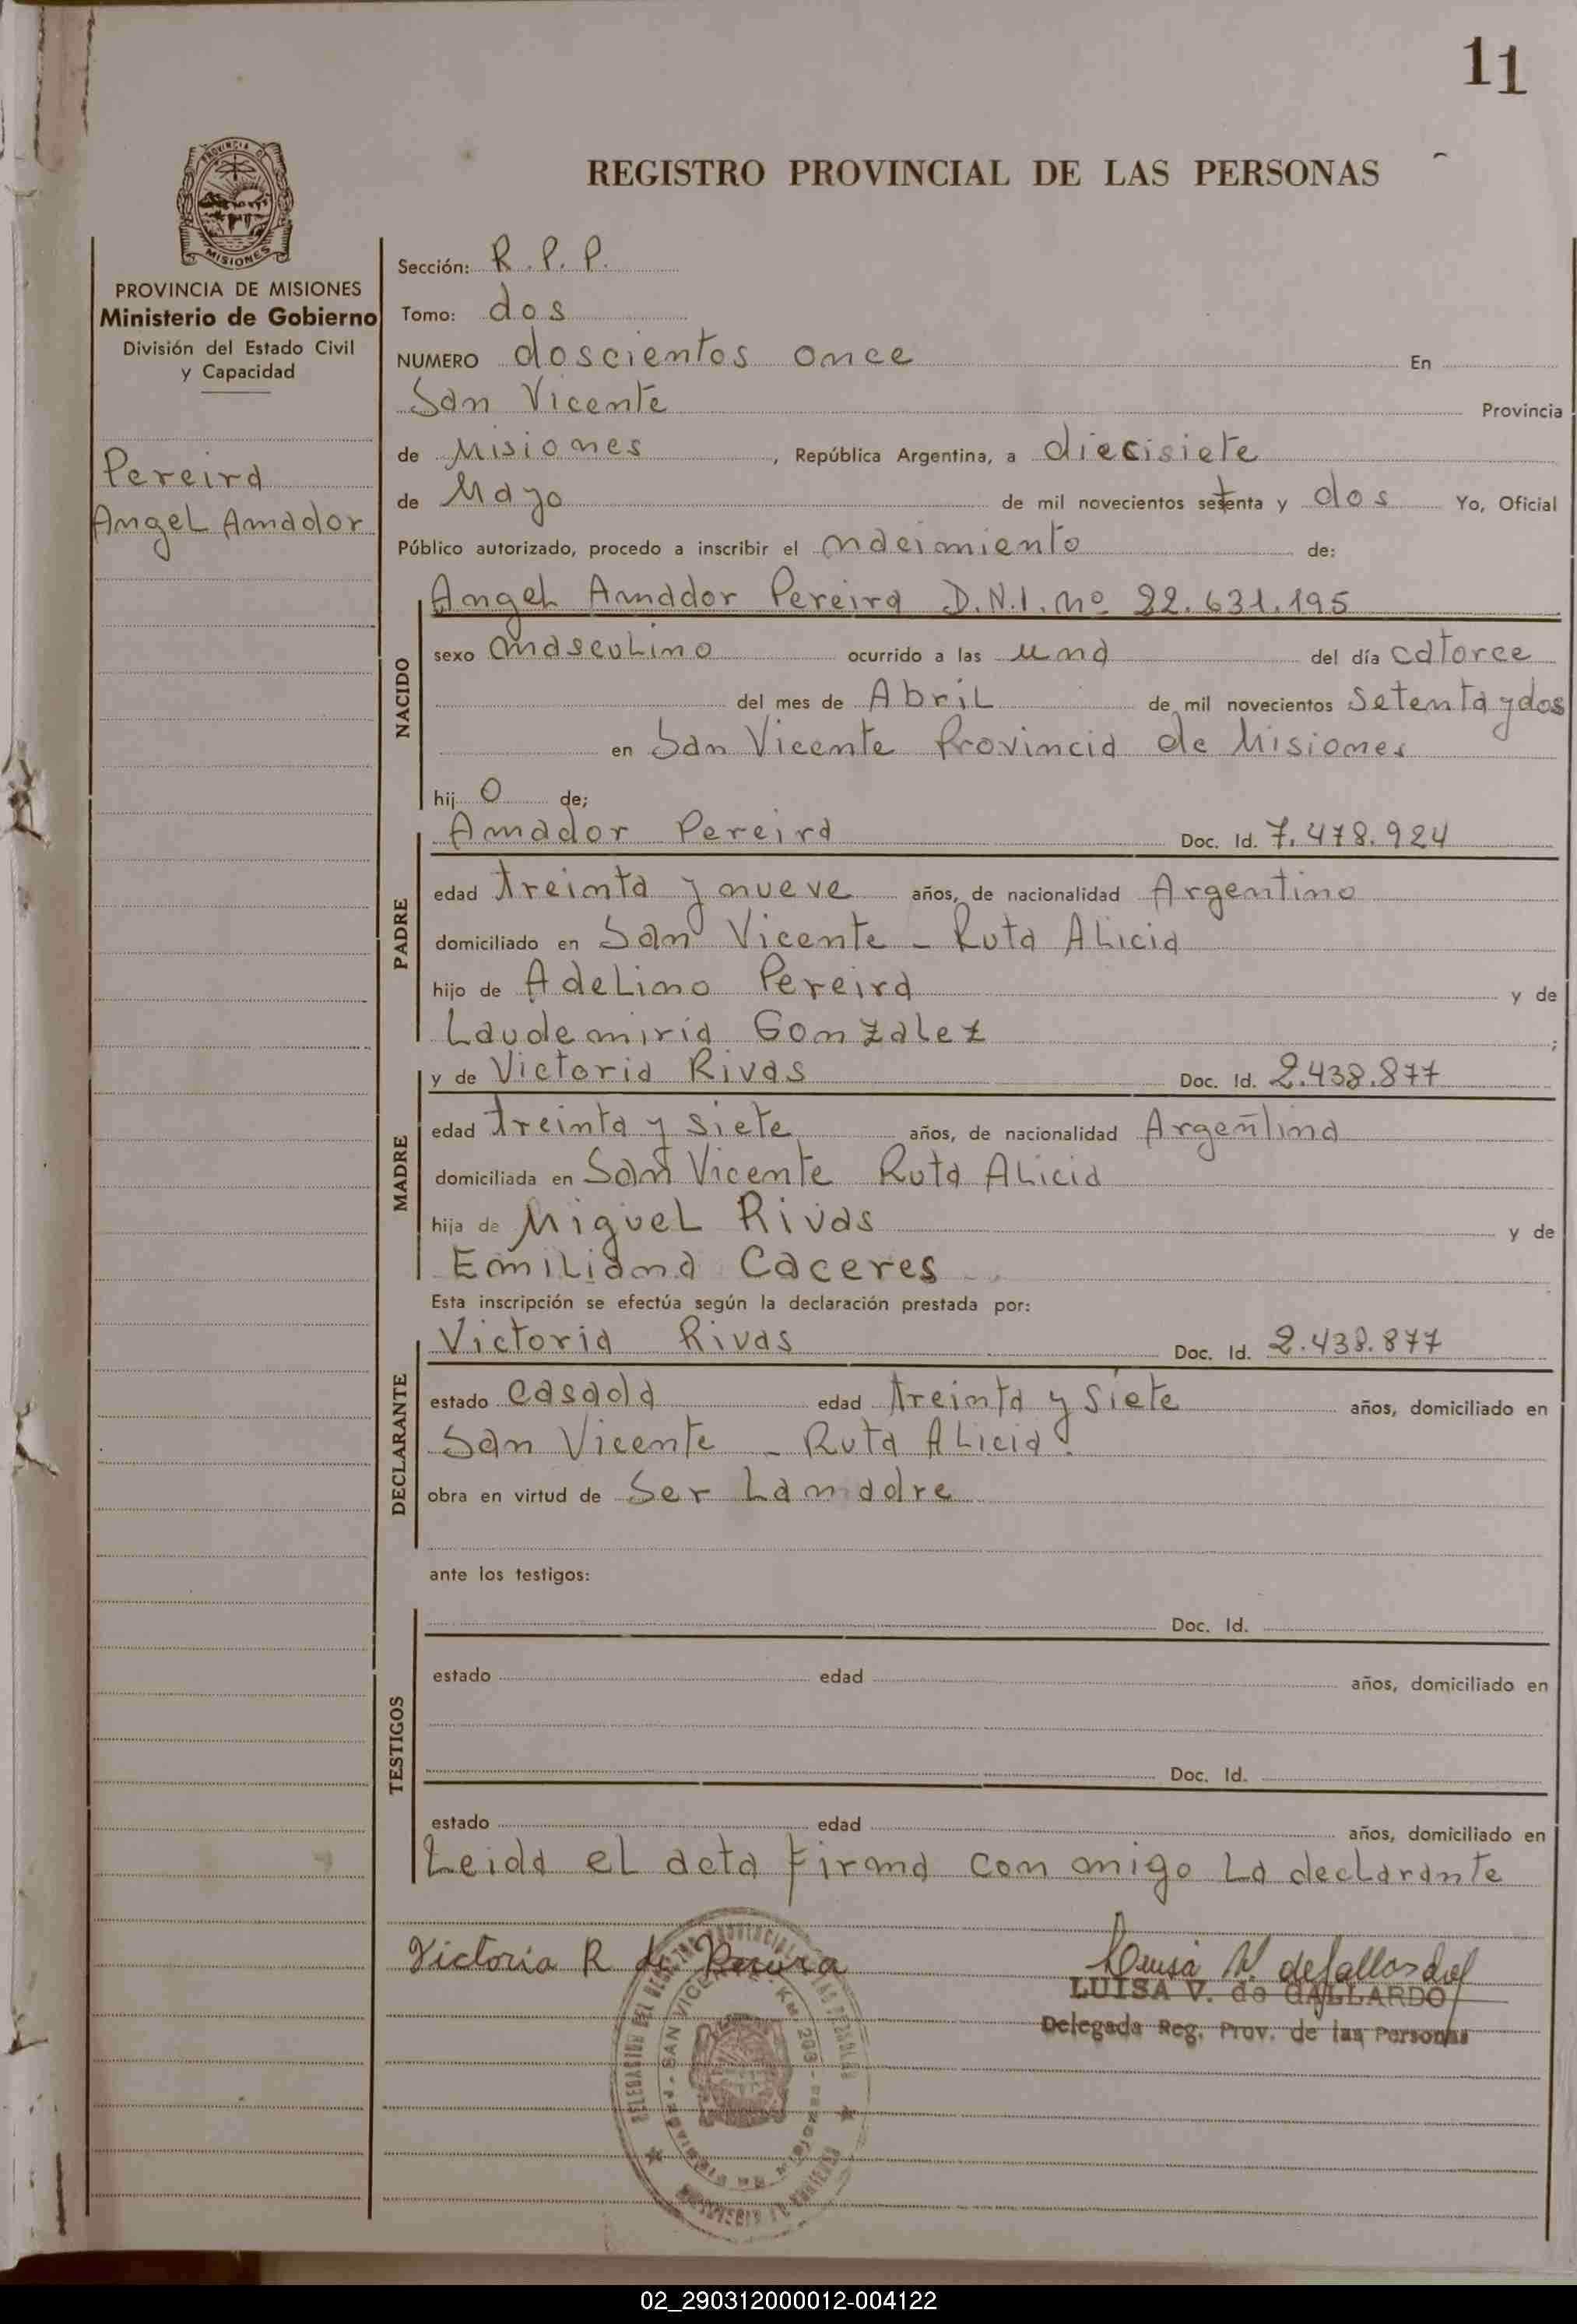 11
REGISTRO PROVINCIAL DE LAS PERSONAS
PROVINCIA DE
MISIONES
PROVINCIA DE MISIONES
Ministerio de Gobierno
División del Estado Civil
y Capacidad
Pereira
Angel Amador
Sección: R. P. P.
Tomo: dos
NUMERO doscientos once En
San Vicente Provincia
de Misiones, República Argentina, a diecisiete
de Mayo de mil novecientos setenta y dos Yo, Oficial
Público autorizado, procedo a inscribir el nacimiento de:
NACIDO
Angel Amador Pereira D.N.I. Nº 22.631.195
sexo masculino ocurrido a las una del día catorce
del mes de Abril de mil novecientos setenta y dos
en San Vicente Provincia de Misiones
hij o de;
PADRE
Amador Pereira Doc. Id. 7.478.924
edad treinta y nueve años, de nacionalidad Argentino
domiciliado en San Vicente - Ruta Alicia
hijo de Adelino Pereira y de
Laudemiria Gonzalez ;
MADRE
y de Victoria Rivas Doc. Id. 2.438.877
edad treinta y siete años, de nacionalidad Argentina
domiciliada en San Vicente Ruta Alicia
hija de Miguel Rivas y de
Emiliana Caceres
Esta inscripción se efectúa según la declaración prestada por:
DECLARANTE
Victoria Rivas Doc. Id. 2.438.877
estado casada edad treinta y siete años, domiciliado en
San Vicente - Ruta Alicia.
obra en virtud de Ser La madre
ante los testigos:
TESTIGOS
Doc. Id.
estado edad años, domiciliado en
Doc. Id.
estado edad años, domiciliado en
Leida el acta firma con migo La declarante
Victoria R de Pereira
Luisa V. de Gallardo
LUISA V. de GALLARDO
Delegada Reg. Prov. de las Personas
SAN VICENTE KM. 203
02_290312000012-004122